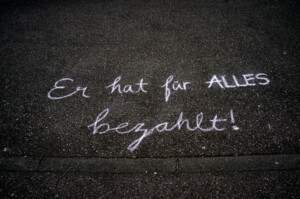 Er hat für ALLES
bezahlt!